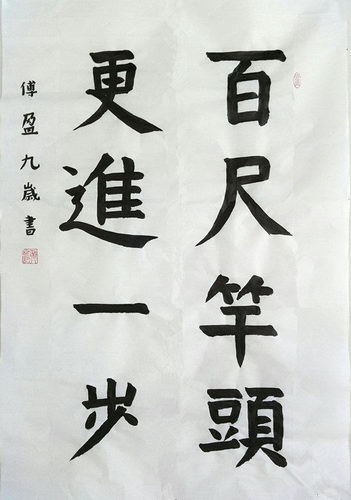 百尺竿頭
更進一步
傅盈九歲書